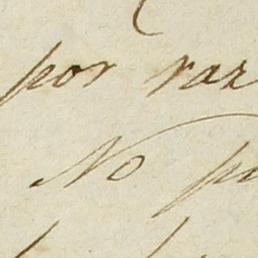 por raz
No p